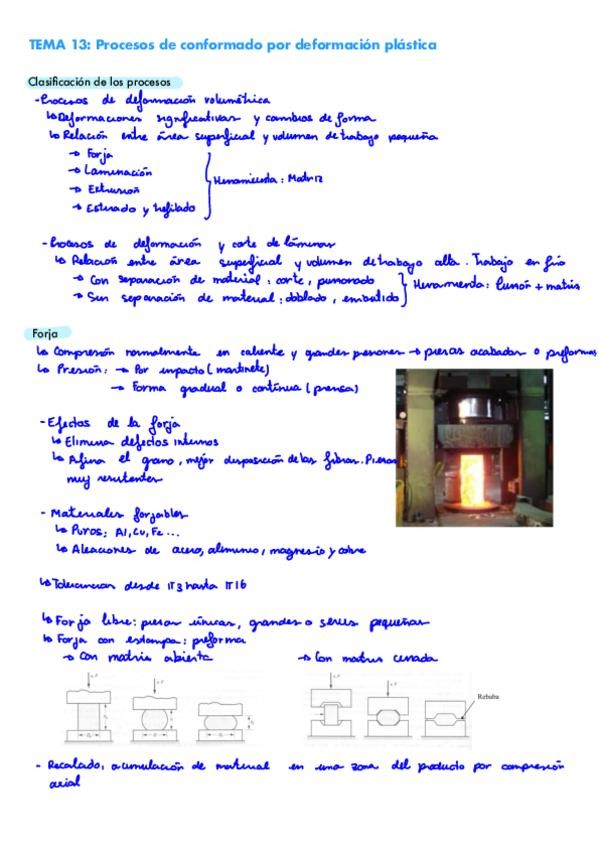 TEMA 13: Procesos de conformado por deformación plástica
Clasificación de los procesos
- Procesos de deformación volumétrica
↳ Deformaciones significativas y cambios de forma
↳ Relación entre área superficial y volumen de trabajo pequeña
→ Forja
→ Laminación
→ Extrusión
→ Estirado y trefilado
Herramienta: Matriz
- Procesos de deformación y corte de láminas
↳ Relación entre área superficial y volumen de trabajo alta. Trabajo en frío
→ Con separación de material: corte, punzonado
→ Sin separación de material: doblado, embutido
Herramienta: Punzón + matriz
Forja
↳ Compresión normalmente en caliente y grandes presiones → piezas acabadas o preformas
↳ Presión: → Por impacto (martinete)
→ Forma gradual o continua (prensa)
- Efectos de la forja
↳ Elimina defectos internos
↳ Afina el grano, mejor disposición de las fibras. Piezas
muy resistentes
- Materiales forjables
↳ Puros: Al, Cu, Fe...
↳ Aleaciones de acero, aluminio, magnesio y cobre
↳ Tolerancias desde IT3 hasta IT16
↳ Forja libre: piezas únicas, grandes o series pequeñas
↳ Forja con estampa: preforma
→ Con matriz abierta → Con matriz cerrada
Rebaba
- Recalado: acumulación de material en una zona del producto por compresión
axial